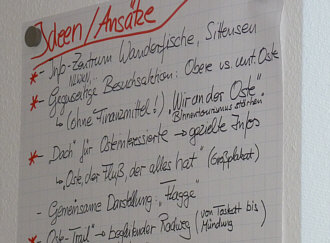 Ideen/Ansätze
* - Info-Zentrum Wanderfische, Sittensen
Gegenseitige Besuchsaktion: Obere vs. unt. Oste
↳ (ohne Finanzmittel!) "Wir an der Oste"
"Binnentourismus stärken"
* - "Dach" für Osteinteressierte → gezielte Infos
↳ "Oste, der Fluß, der alles hat" (Großplakat)
- Gemeinsame Darstellung: "Flagge"
* "Oste-Trail" → begleitender Radweg (von Tostedt bis
Mündung